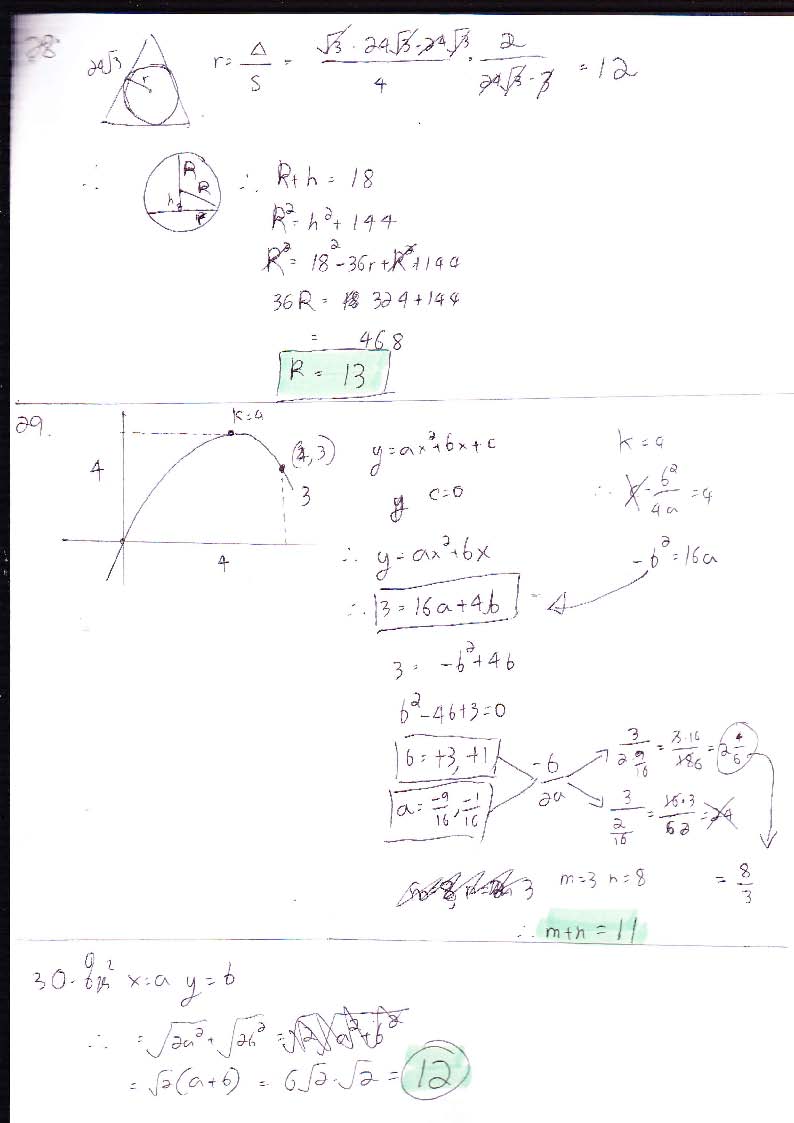 28
24√3
r
r = Δ/S = (√3 · 24√3 · 24√3)/4 · 2/(24√3 · 3) = 12
∴
R
R
h
r
∴ R + h = 18
R² = h² + 144
R² = 18² - 36r + R² + 144
36R = 324 + 144
= 468
R = 13
29.
k=4
4
(4, 3)
3
4
y = ax² + bx + c
y c=0
∴ y = ax² + bx
∴ 3 = 16a + 4b
k = 4
∴ -b²/4a = 4
-b² = 16a
3 = -b² + 4b
b² - 4b + 3 = 0
b = +3, +1
a = -9/16, -1/16
-b/2a
3/(2 9/16) = 3·16/186 = 2 4/6
3/(2/16) = 16·3/62 = 24
= 8/3
m=3 n=8
∴ m+n = 11
30. x=a y=b
∴ = √2a² + √2b² = √2√a²+b²
= √2(a+b) = 6√2·√2 = 12